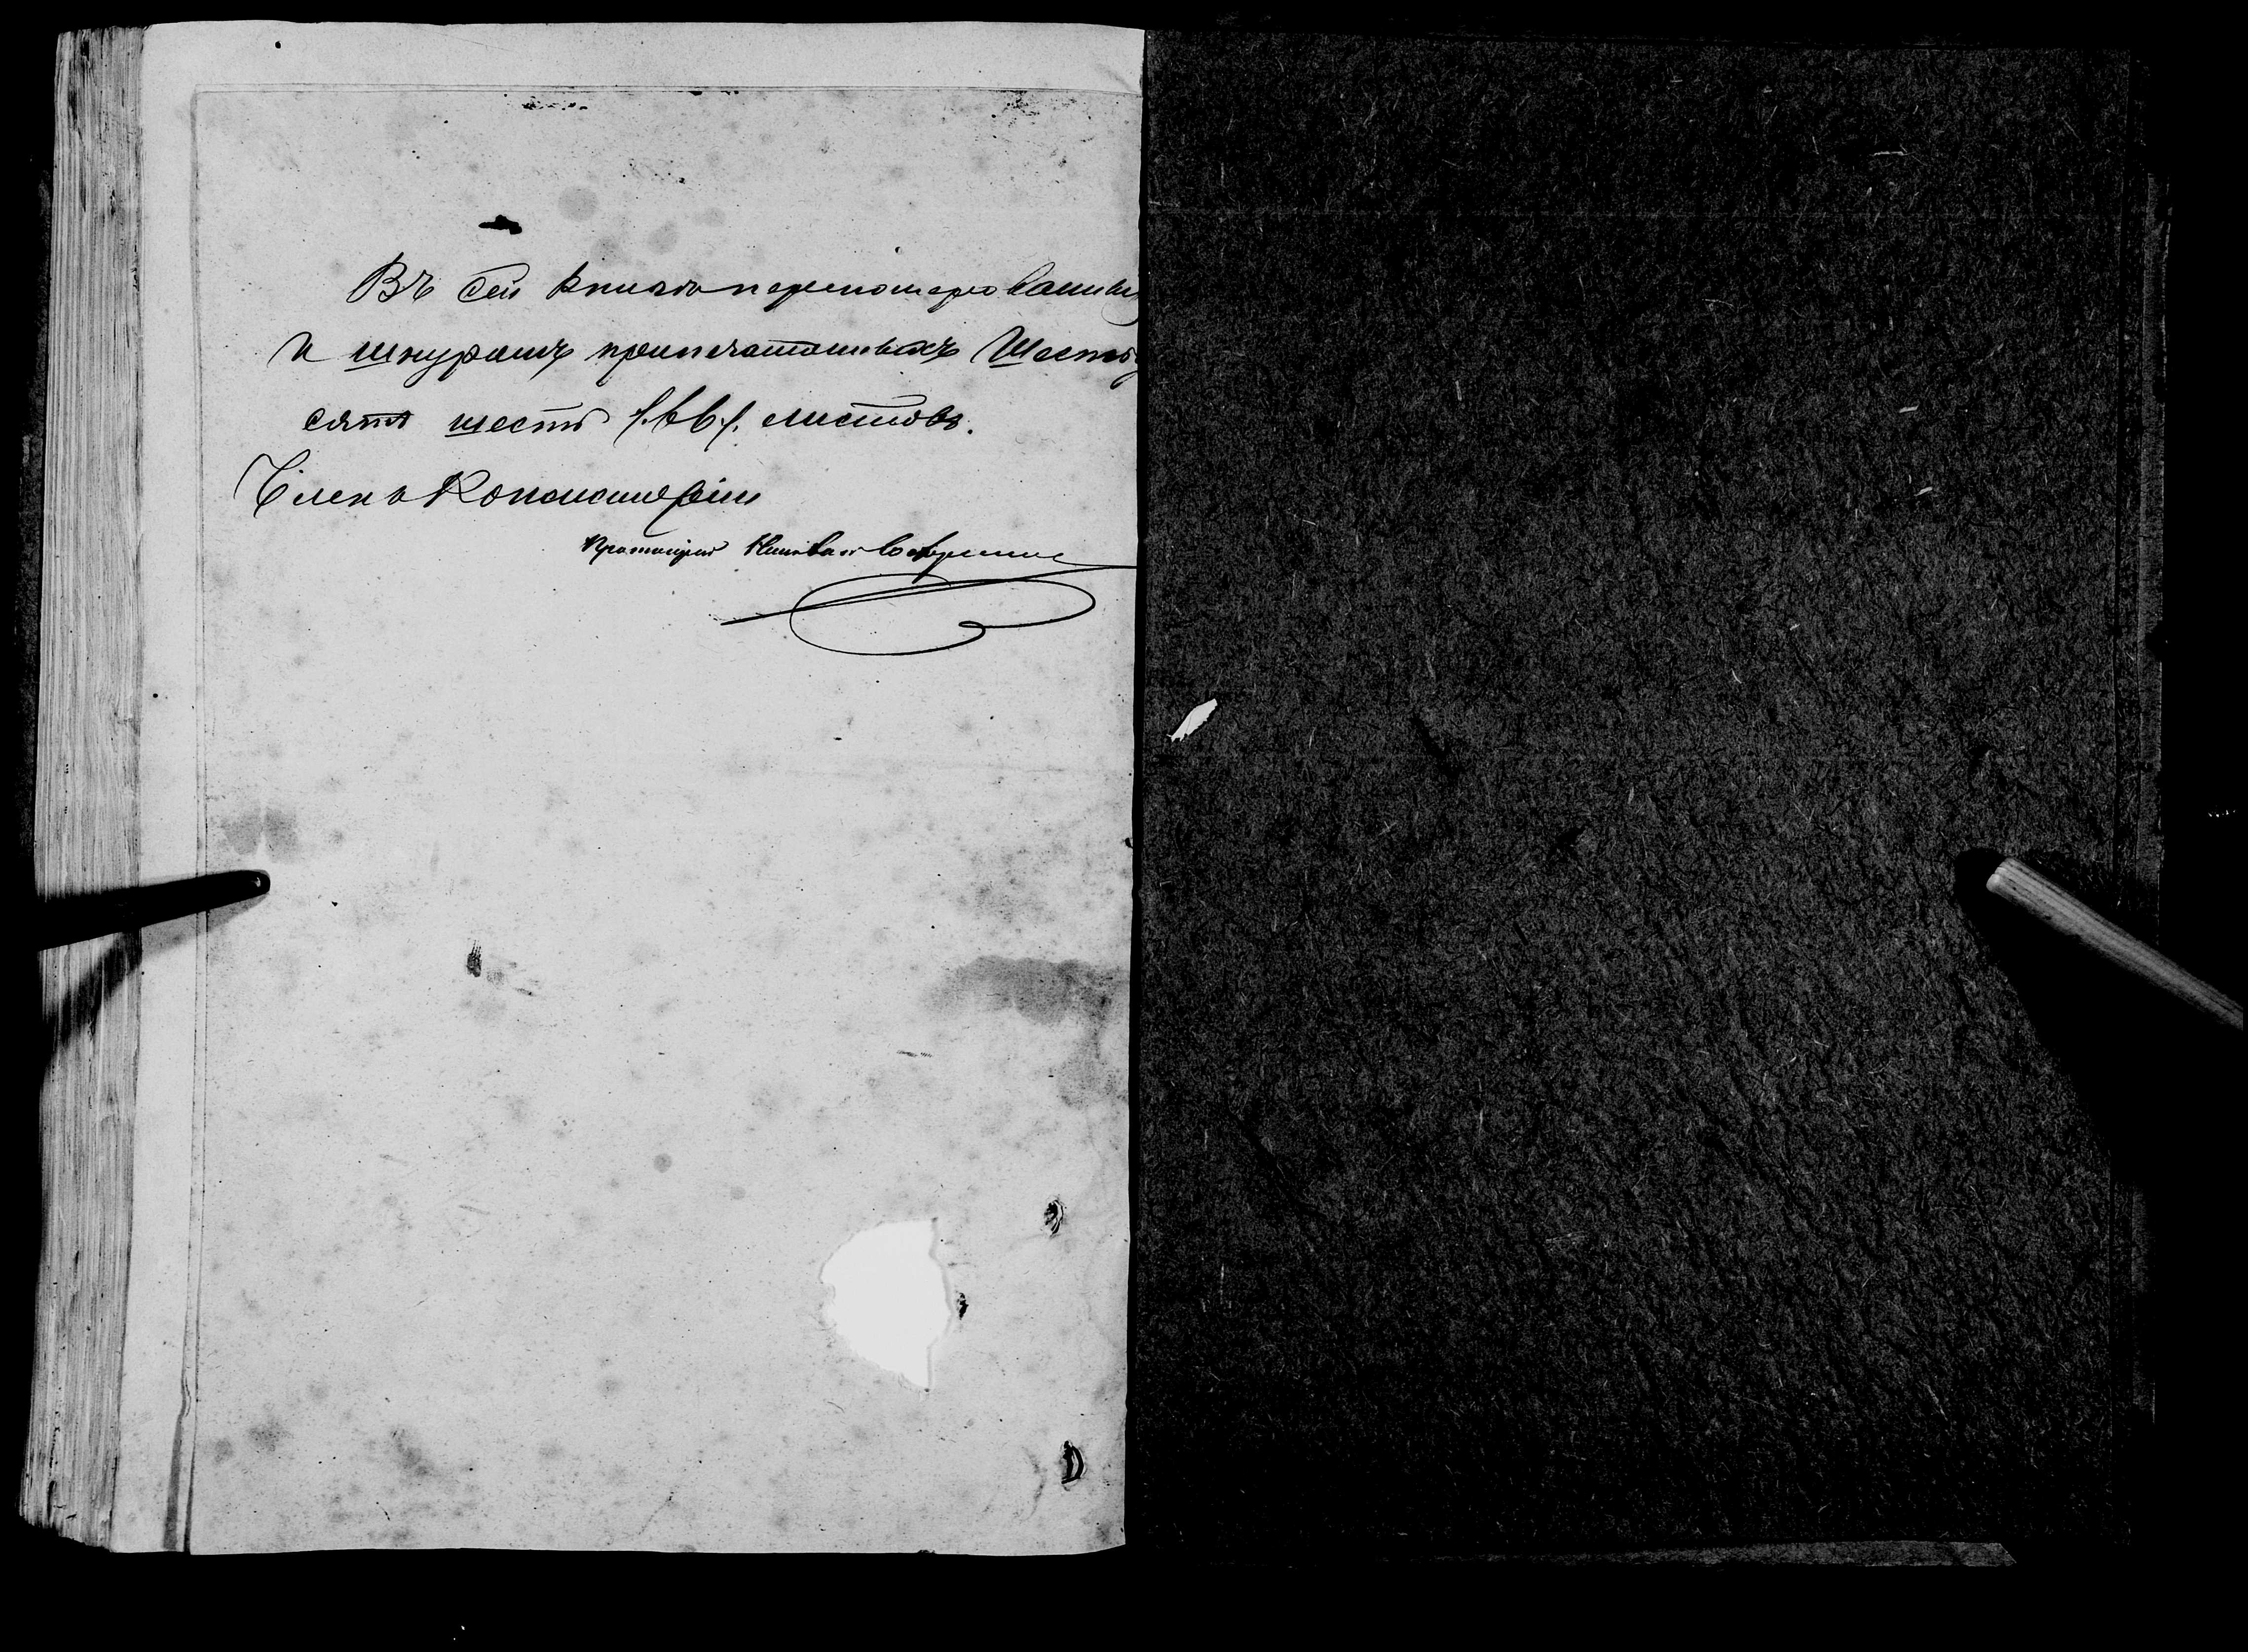 Въ сей книгѣ переномерованны
и шнуромъ припечатанныхъ Шестьд
сятъ шесть /.66./. листовъ.
Членъ Консисторіи
Протоіерей